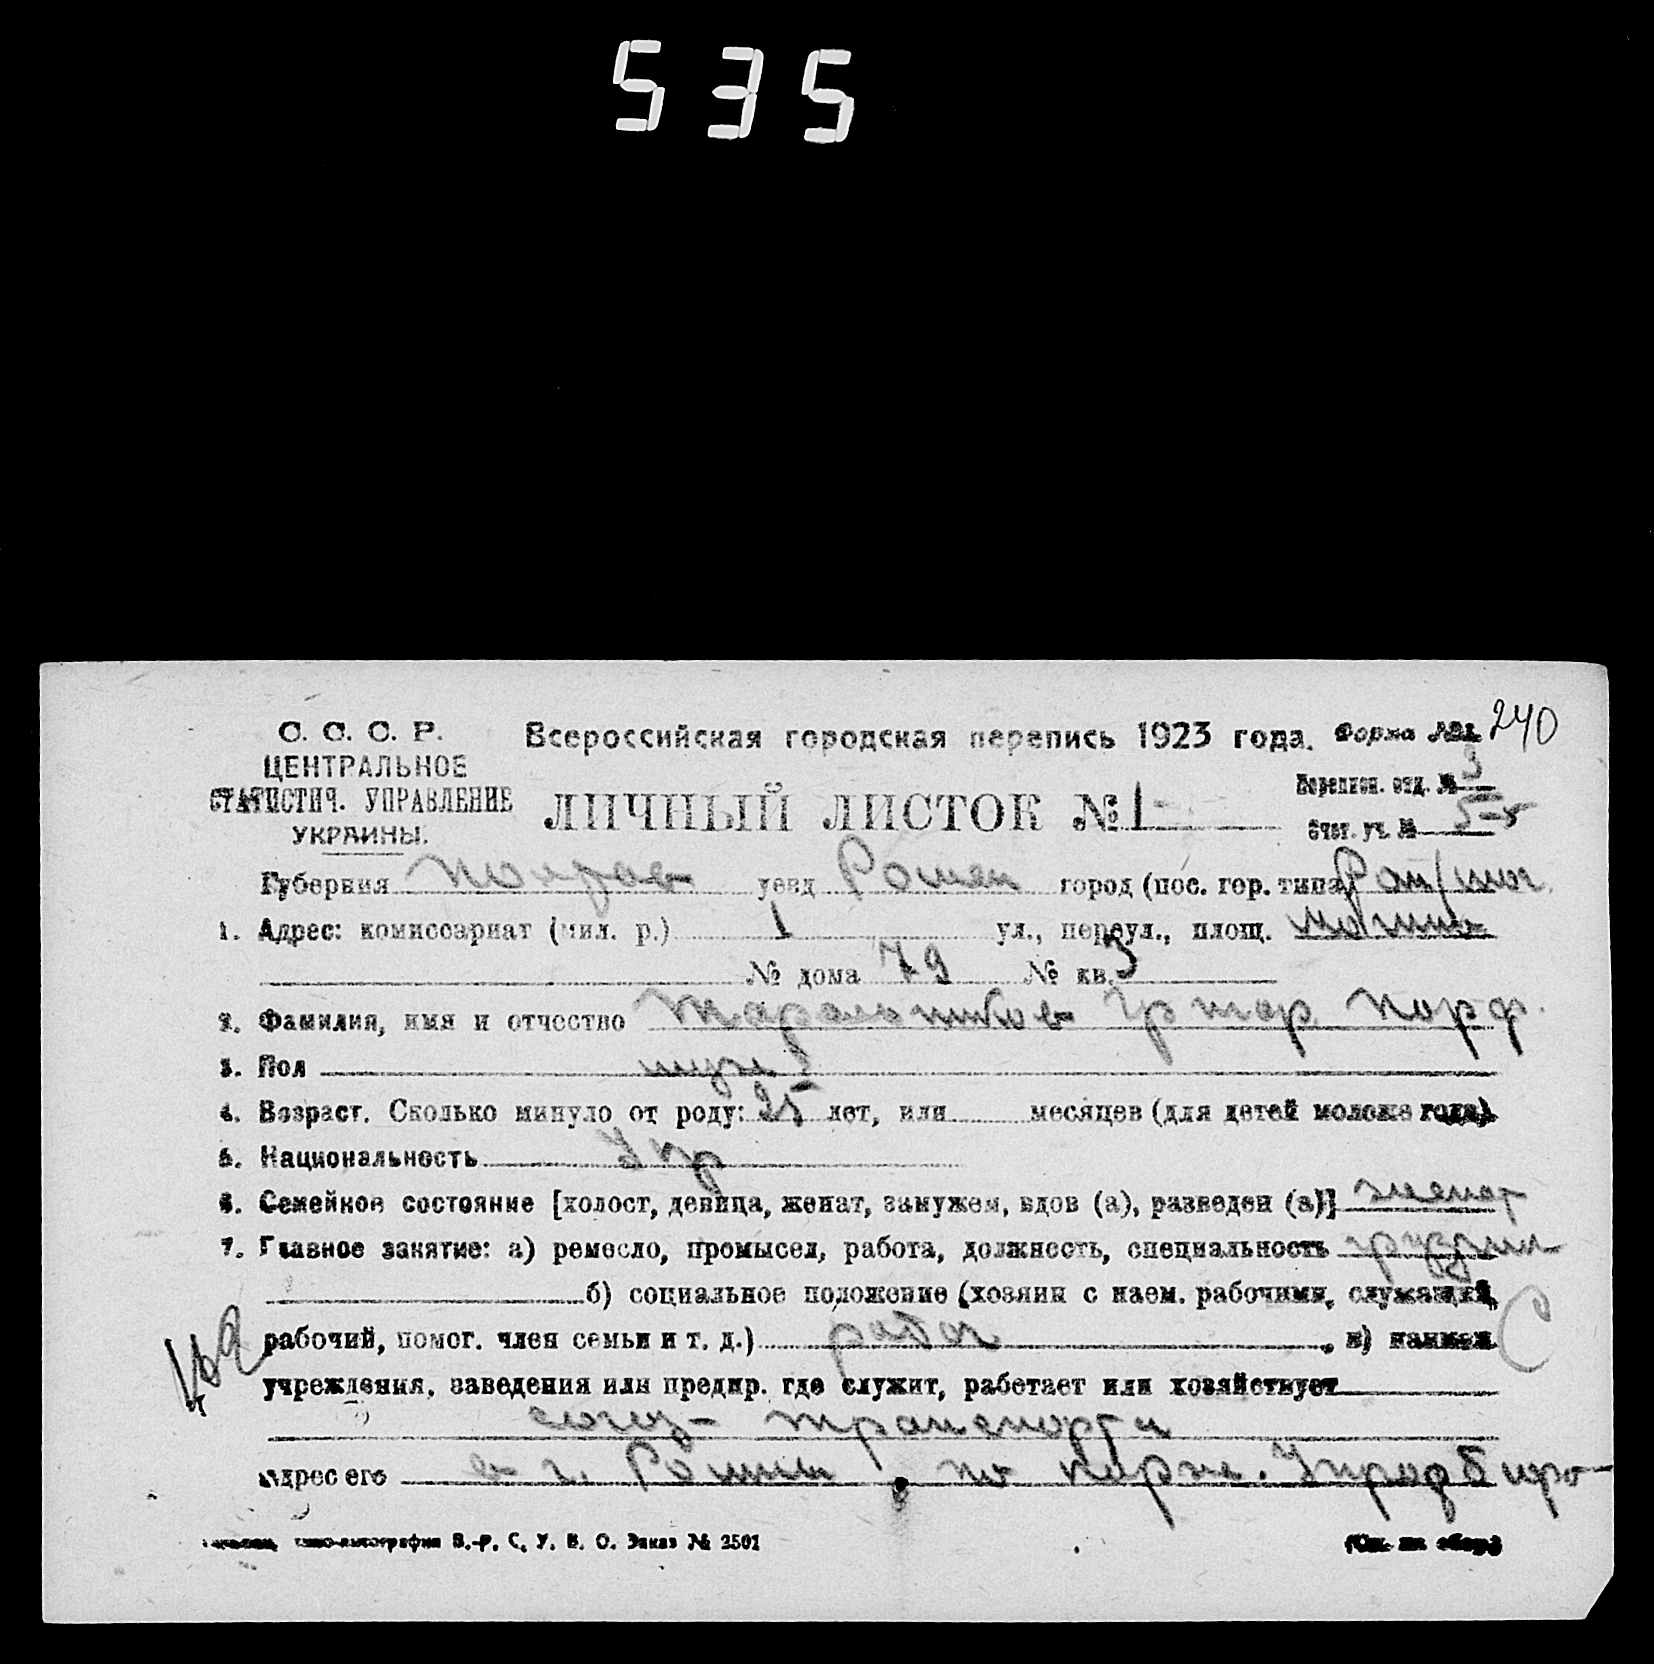 535
С. С. С. Р.
ЦЕНТРАЛЬНОЕ
СТАТИСТИЧ. УПРАВЛЕНИЕ
УКРАИНЫ.
Всероссийская городская перепись 1923 года.
Форма №1 240
ЛИЧНЫЙ ЛИСТОК № 1
Переписн. отд. № 3
Счет. уч. №
Губерния Полтав уезд Ромен город (пос. гор. типа)
1. Адрес: комиссариат (мил. р.) 1 ул., переул., площ.
№ дома 79 № кв. 3
2. Фамилия, имя и отчество
3. Пол муж
4. Возраст. Сколько минуло от роду: 25 лет, или месяцев (для детей моложе года).
5. Национальность Укр
6. Семейное состояние [холост, девица, женат, замужем, вдов (а), разведен (а)] женат
7. Главное занятие: а) ремесло, промысел, работа, должность, специальность грузчик
б) социальное положение (хозяин с наем. рабочими, служащий,
рабочий, помог. член семьи и т. д.) рабоч , в) наимен. С
учреждения, заведения или предпр. где служит, работает или хозяйствует
союз- транспорта
адрес его в г. Ромны, по
В.-Р. С. У. В. О. Заказ № 2501
(См. на обор.)